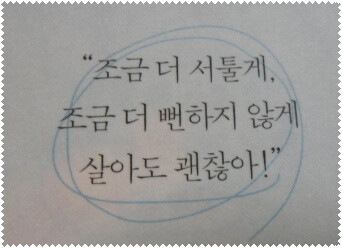 “조금 더 서툴게,
조금 더 뻔하지 않게
살아도 괜찮아!”